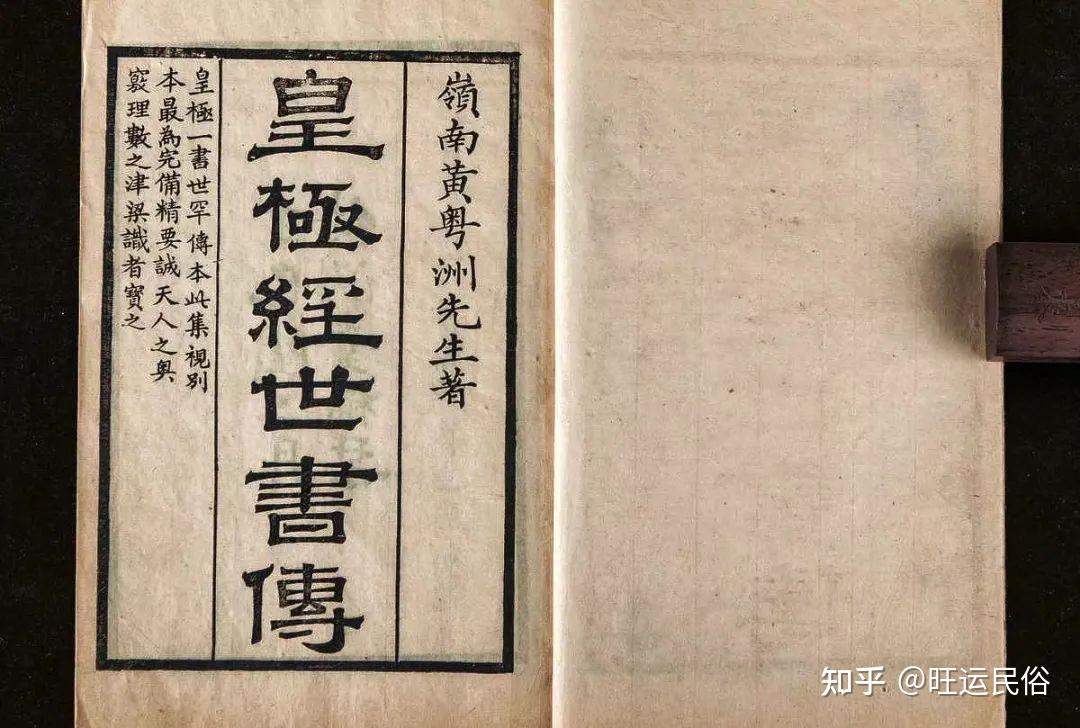 嶺南黃粤洲先生著
皇極經世書傳
皇極一書世罕傳本此集視別
本最為完備精要誠天人之奥
窽理數之津梁識者寶之
知乎 @旺运民俗